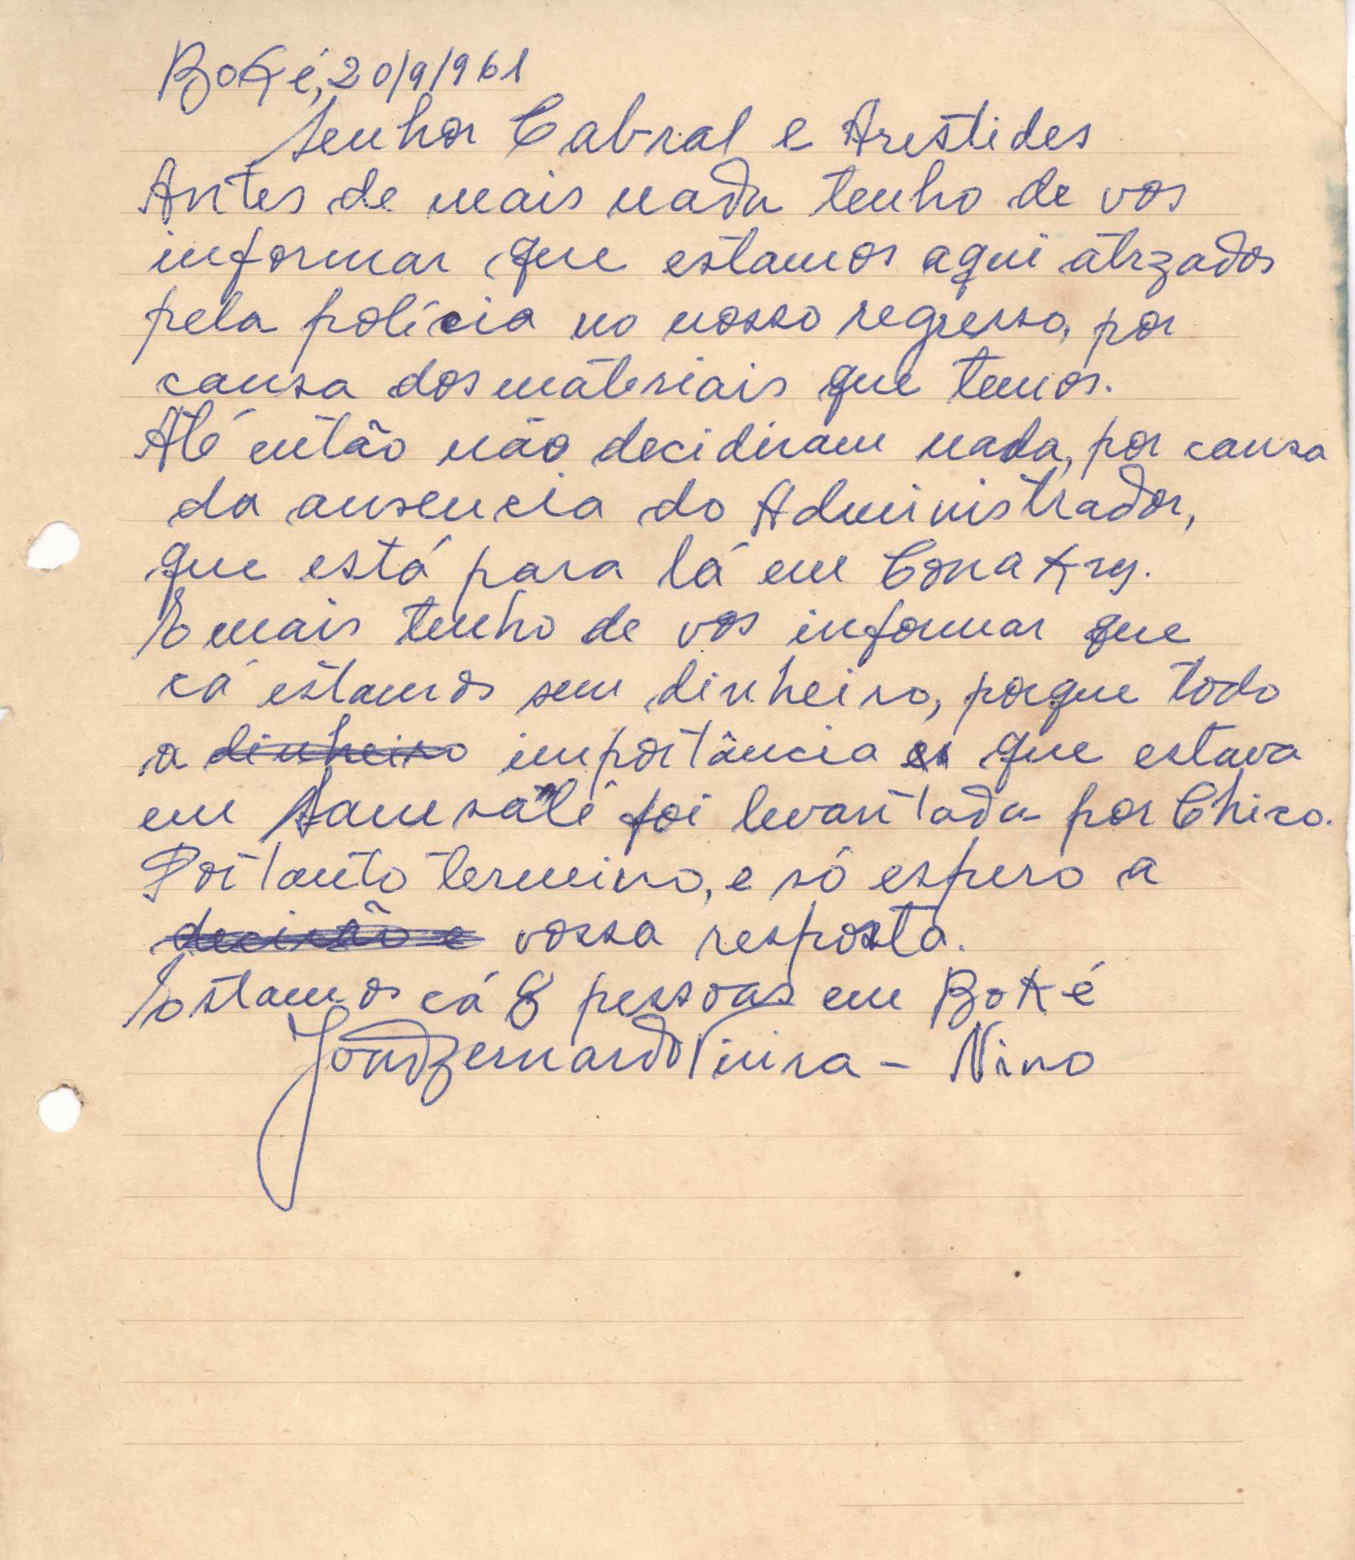 Boké, 20/9/961
Senhor Cabral e Aristides
Antes de mais nada tenho de vos
informar que estamos aqui atrzados
pela polícia no nosso regresso, por
causa dos materiais que temos.
Até então não decidiram nada, por causa
da ausencia do Administrador,
que está para lá em Conakry.
E mais tenho de vos informar que
cá estamos sem dinheiro, porque todo
a dinheiro importância que estava
em Samsalé foi levantada por Chico.
Portanto termino, e só espero a
decisão e vossa resposta.
Estamos cá 8 pessoas em Boké
João Bernardo Vieira - Nino